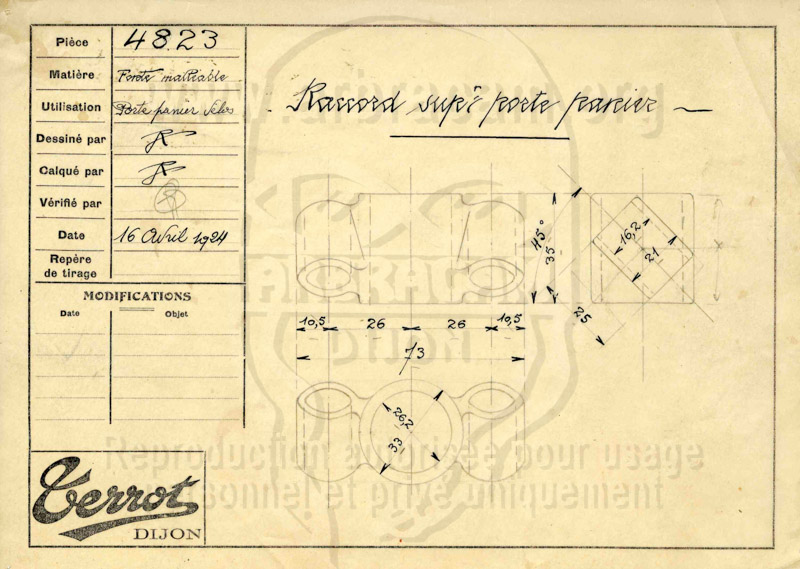 Pièce 4823
Matière Fonte malléable
Utilisation Porte panier
Dessiné par
Calqué par
Vérifié par
Date 16 Avril 1924
Repère
de tirage
MODIFICATIONS
Date Objet
Raccord supr porte panier
45°
35
16,2
21
25
10,5 26 26 10,5
73
26,2
33
Reproduction autorisée pour usage
personnel et privé uniquement
Terrot
DIJON
DIJON